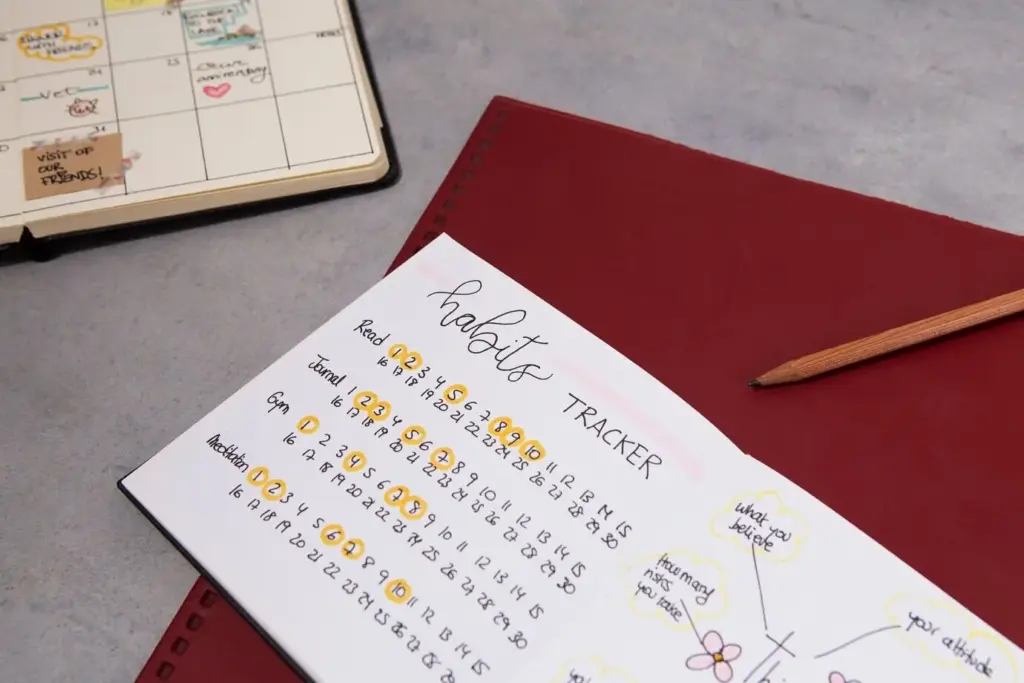 WITH
FRIENDS
NOTES
24
25
26
Vet
aniversary
31
VISIT OF
OUR
FRIENDS!
habits
TRACKER
Read 1 2 3 4 5 6 7 8 9 10 11 12 13 14 15
16 17 18 19 20 21 22 23 24 25 26 27 28 29 30
Journal 1 2 3 4 5 6 7 8 9 10 11 12 13 14 15
16 17 18 19 20 21 22 23 24 25 26 27 28 29 30
Gym 1 2 3 4 5 6 7 8 9 10 11 12 13 14 15
16 17 18 19 20 21 22 23 24 25 26 27 28 29 30
Meditation 1 2 3 4 5 6 7 8 9 10 11 12 13 14 15
16 17 18 19 20 21 22 23 24 25 26 27 28 29
what you
believe
How many
risks
you take
your attitude